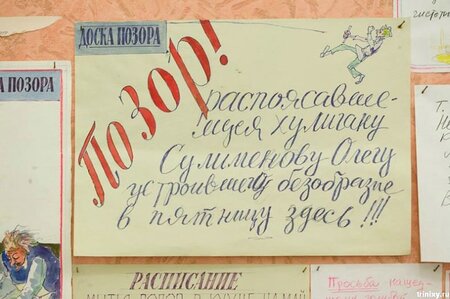 ДОСКА ПОЗОРА
Позор!
распоясавше-
муся хулигану
Сулименову Олегу
устроившему безобразие
в пятницу здесь!!!
ДОСКА ПОЗОРА
РАСПИСАНИЕ
Просьба
trinixy.ru